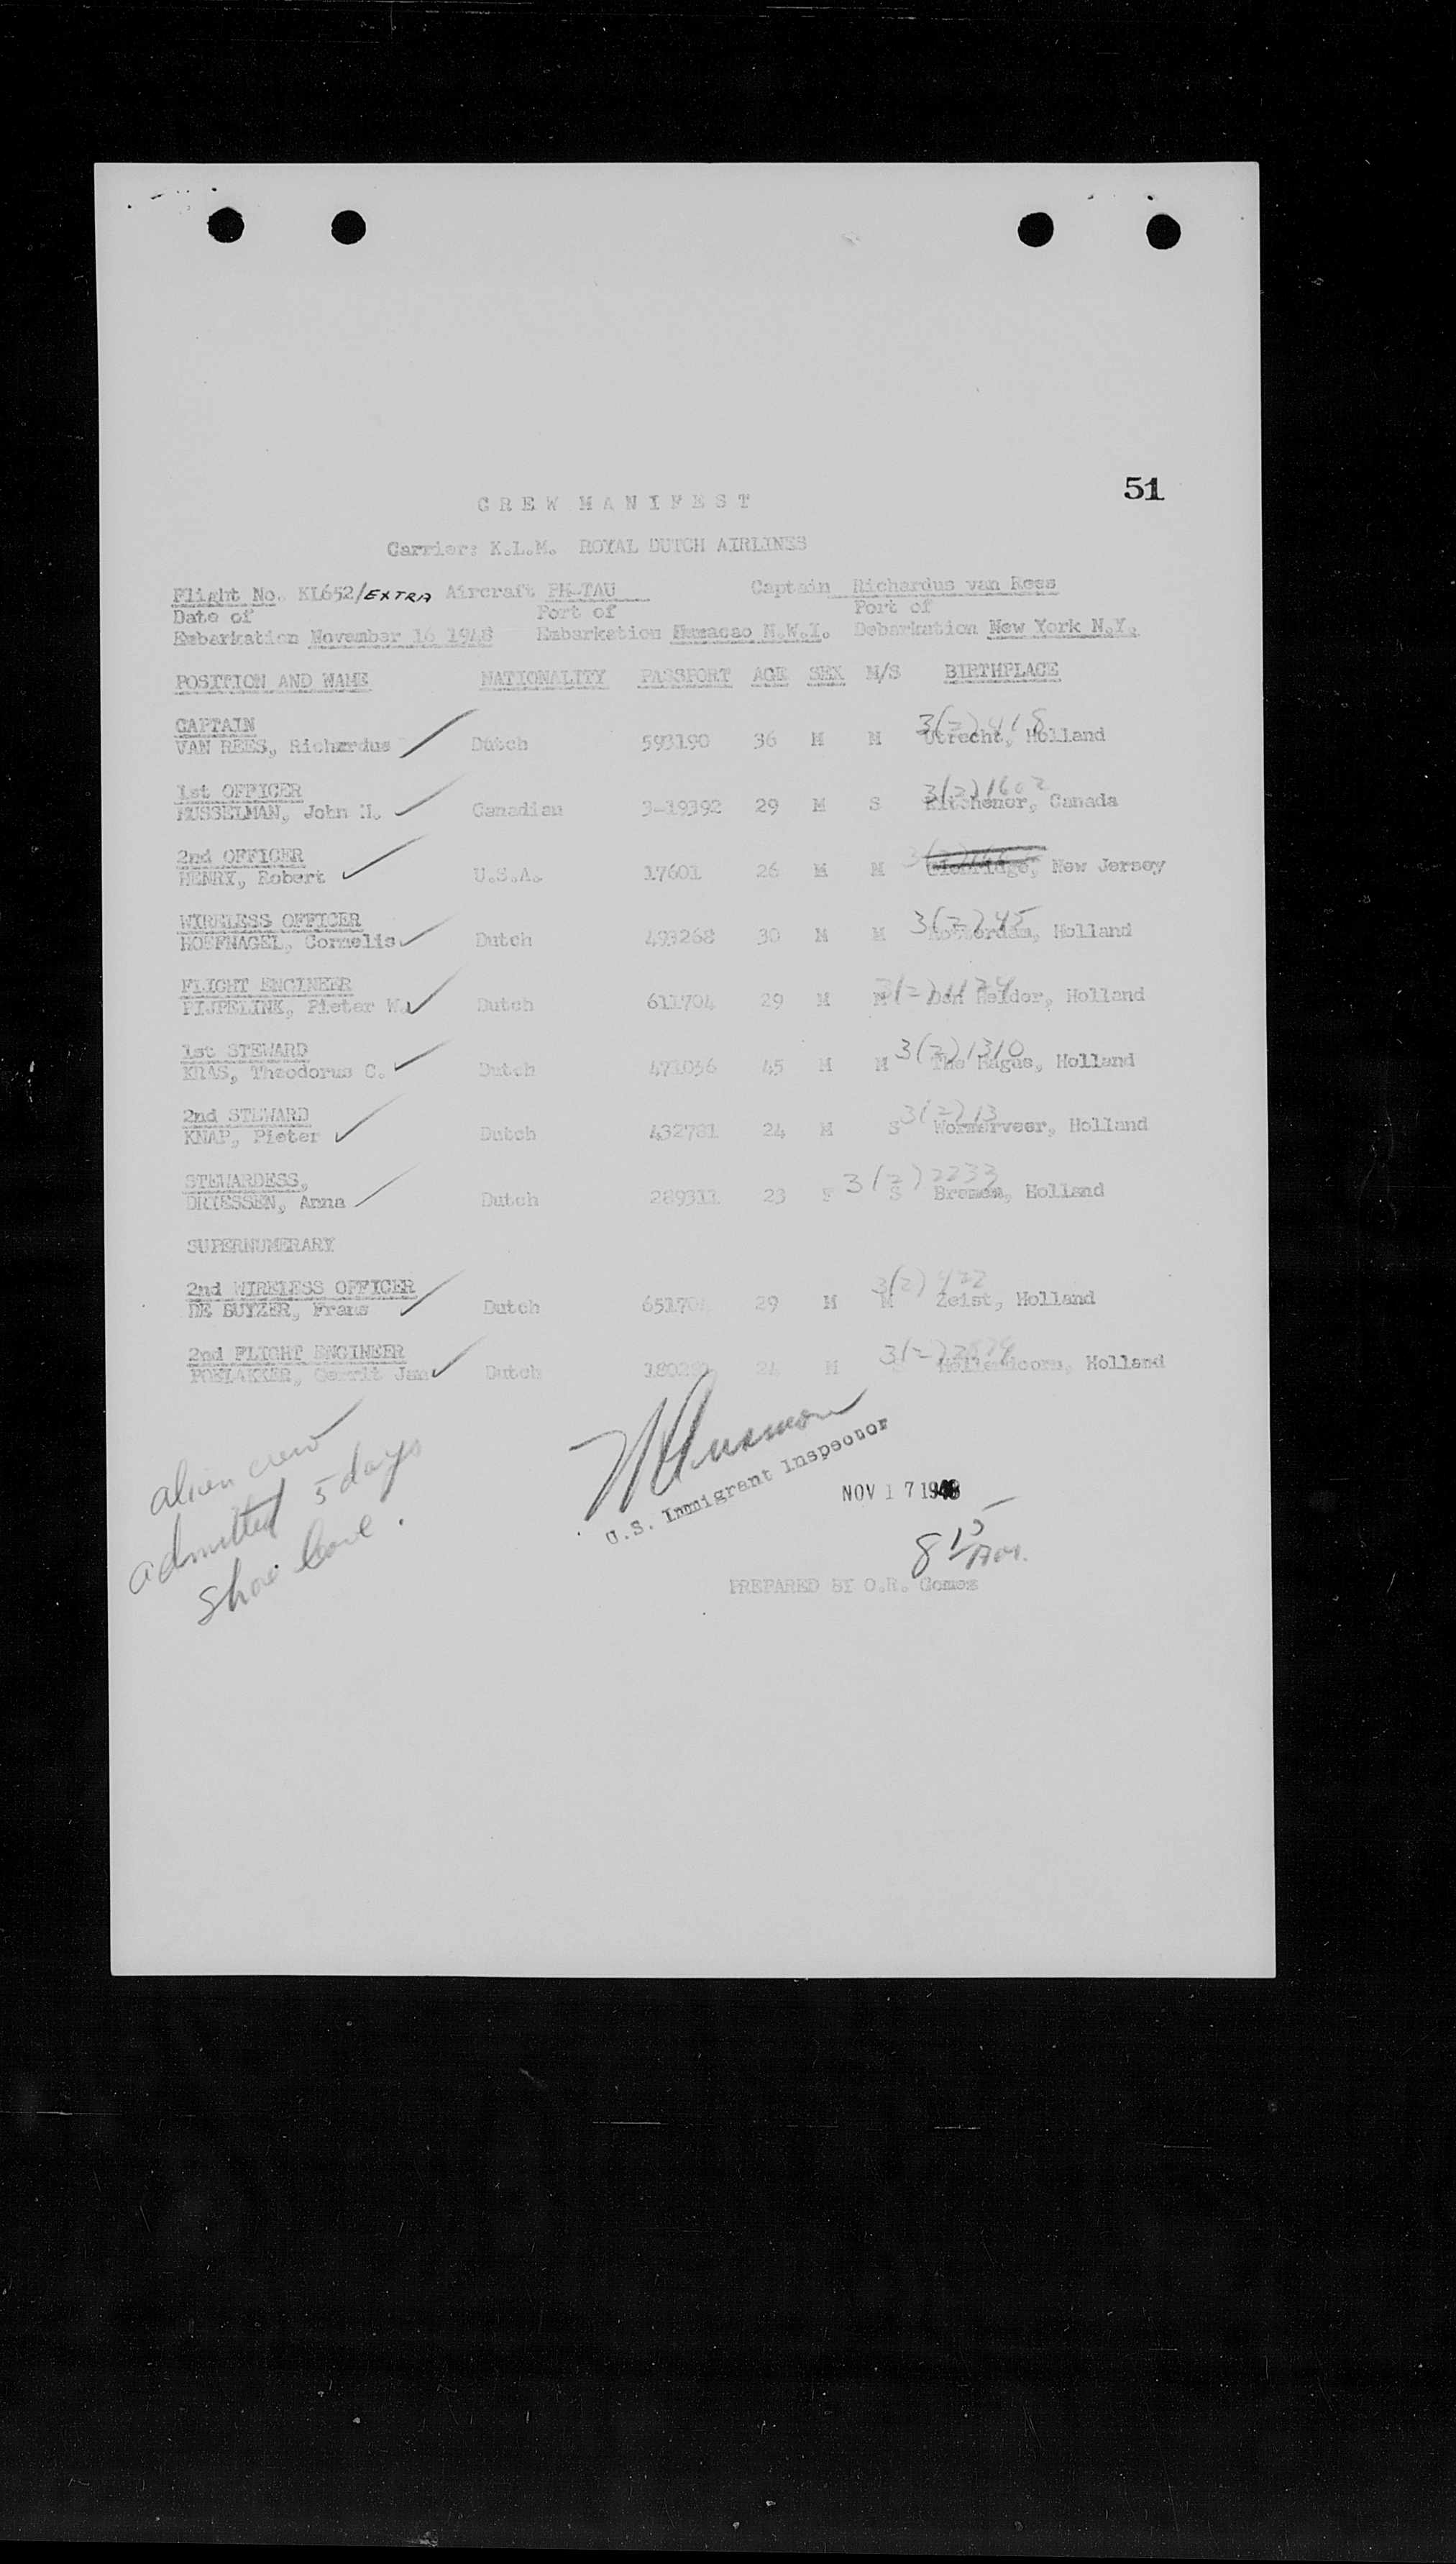 51
CREW MANIFEST
Carrier: K.L.M. ROYAL DUTCH AIRLINES
Flight No. KL652/EXTRA Aircraft PH-TAU Captain Richardus van Rees
Date of Port of Port of
Embarkation November 16 1948 Embarkation N.W.I. Debarkation New York N.Y.
POSITION AND NAME NATIONALITY PASSPORT AGE SEX M/S BIRTHPLACE
CAPTAIN 3(2) 418
VAN REES, Richardus Dutch 593190 36 M M Utrecht, Holland
1st OFFICER 3(2) 1602
MUSSELMAN, John Canadian 3-19392 29 M S Kitchener, Canada
2nd OFFICER
HENRY, Robert U.S.A. 17601 26 M M New Jersey
WIRELESS OFFICER 3(2) 45
HOEFNAGEL, Cornelis Dutch 493268 30 M M Rotterdam, Holland
FLIGHT ENGINEER
PIJPELINK, Pieter W. Dutch 611704 29 M M Den Helder, Holland
1st STEWARD 3(2) 1310
KRAS, Theodorus C. Dutch 471056 45 M M The Hague, Holland
2nd STEWARD 3(2) 13
KNAP, Pieter Dutch 432781 24 M S Wormerveer, Holland
STEWARDESS, 3(2) 2233
DRIESSEN, Anna Dutch 289311 23 F S Holland
SUPERNUMERARY
2nd WIRELESS OFFICER 3(2) 422
DE BUYZER, Frans Dutch 29 M M Zeist, Holland
2nd FLIGHT ENGINEER
POELAKKER, Gerrit Jan Dutch 24 M Holland
alien crew
admitted 5 days
shore leave.
U.S. Immigrant Inspector
NOV 17 1948
8 15 AM.
PREPARED BY O.R. Gomez